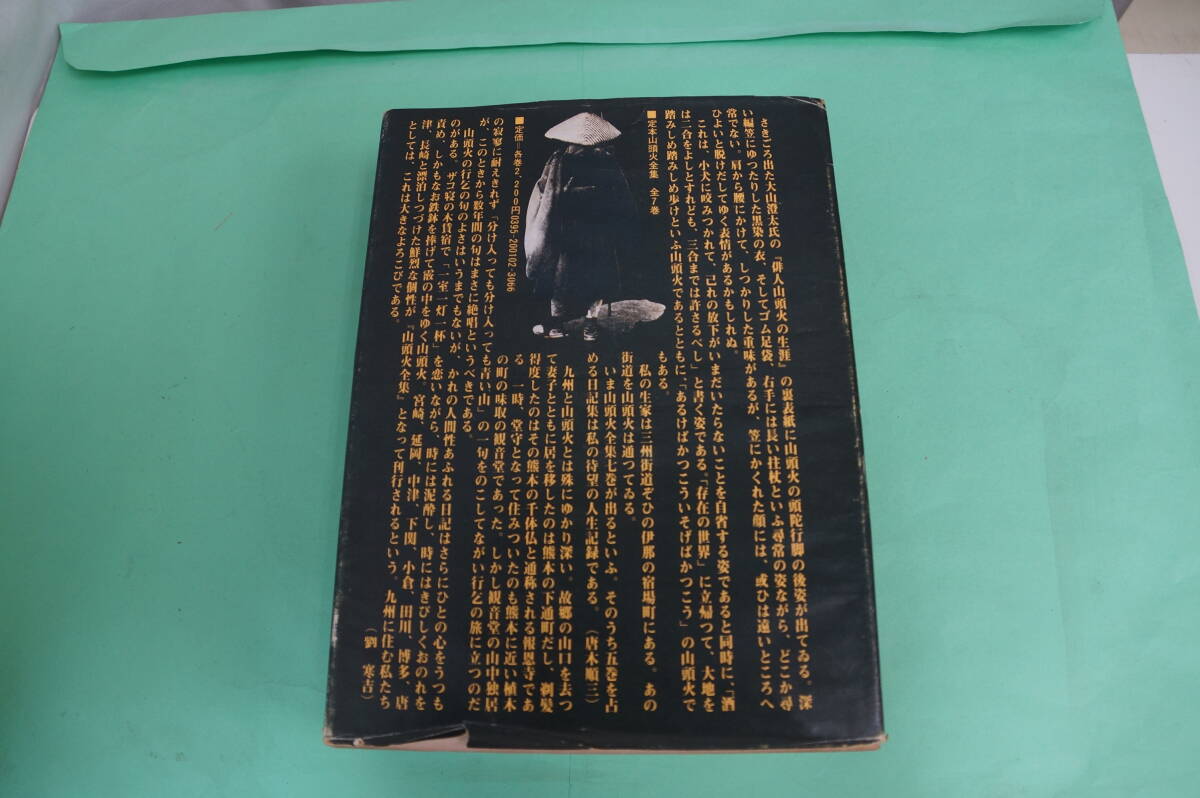 さきごろ出た大山澄太氏の『俳人山頭火の生涯』の裏表紙に山頭火の頭陀行脚の後姿が出てゐる。深
い編笠にゆつたりした黒染の衣、そしてゴム足袋、右手には長い拄杖といふ尋常の姿ながら、どこか尋
常でない。肩から腰にかけて、しつかりした重味があるが、笠にかくれた顔には、或ひは遠いところへ
ひよいと脱けだしてゆく表情があるかもしれぬ。
これは、小犬に咬みつかれて、己れの放下がいまだいたらないことを自省する姿であると同時に、「酒
は二合をよしとすれども、三合までは許さるべし」と書く姿である。「存在の世界」に立帰つて、大地を
踏みしめ踏みしめ歩けといふ山頭火であるとともに、「あるけばかつこういそげばかつこう」の山頭火で
もある。
私の生家は三州街道ぞひの伊那の宿場町にある。あの
街道を山頭火は通つてゐる。
いま山頭火全集七巻が出るといふ。そのうち五巻を占
める日記集は私の待望の人生記録である。（唐木順三）
九州と山頭火とは殊にゆかり深い。故郷の山口を去つ
て妻子とともに居を移したのは熊本の下通町だし、剃髪
得度したのはその熊本の千体仏と通称される報恩寺であ
る 一時、堂守となって住みついたのも熊本に近い植木
の町の味取の観音堂であった。しかし観音堂の山中独居
の寂寥に耐えきれず「分け入っても分け入っても青い山」の一句をのこしてながい行乞の旅に立つのだ
が、このときから数年間の句はまさに絶唱というべきである。
山頭火の行乞の句のよさはいうまでもないが、かれの人間性あふれる日記はさらにひとの心をうつも
のがある。ザコ寝の木賃宿で「一室一灯一杯」を恋いながら、時には泥酔し、時にはきびしくおのれを
責め、しかもなお鉄鉢を捧げて霰の中をゆく山頭火。宮崎、延岡、中津、下関、小倉、田川、博多、唐
津、長崎と漂泊しつづけた鮮烈な個性が『山頭火全集』となって刊行されるという。九州に住む私たち
としては、これは大きなよろこびである。
（劉 寒吉）
■定本山頭火全集 全7巻
■定価＝各巻2,200円 0395-200102-3066